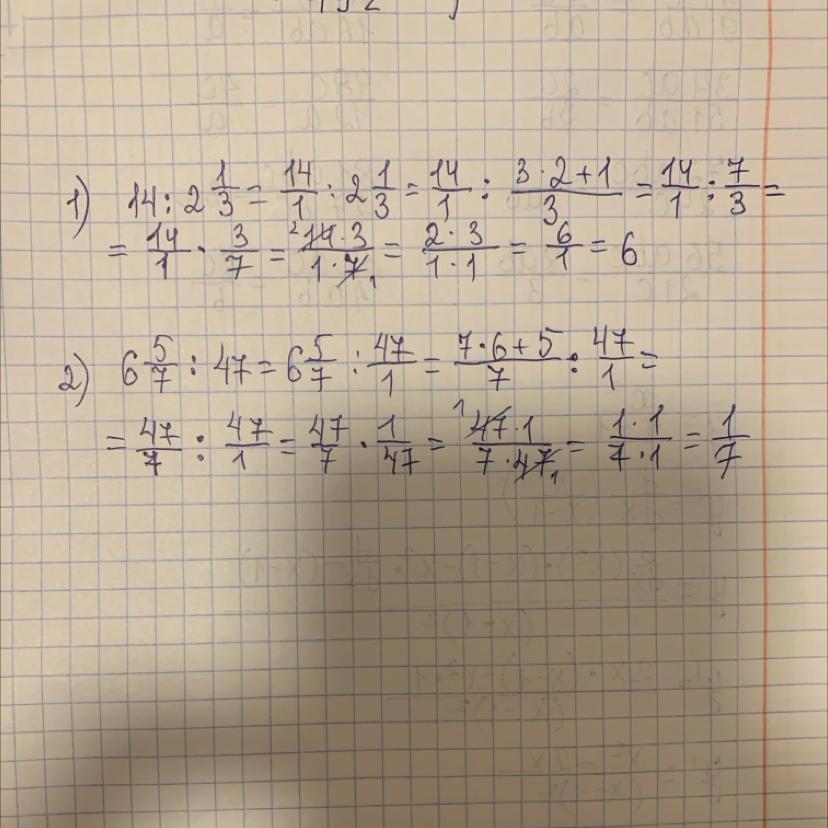 1) 14 : 2 1/3 = 14/1 : 2 1/3 = 14/1 : (3·2+1)/3 = 14/1 : 7/3 =
= 14/1 · 3/7 = (14·3)/(1·7) = (2·3)/(1·1) = 6/1 = 6
2) 6 5/7 : 47 = 6 5/7 : 47/1 = (7·6+5)/7 : 47/1 =
= 47/7 : 47/1 = 47/7 · 1/47 = (47·1)/(7·47) = (1·1)/(7·1) = 1/7